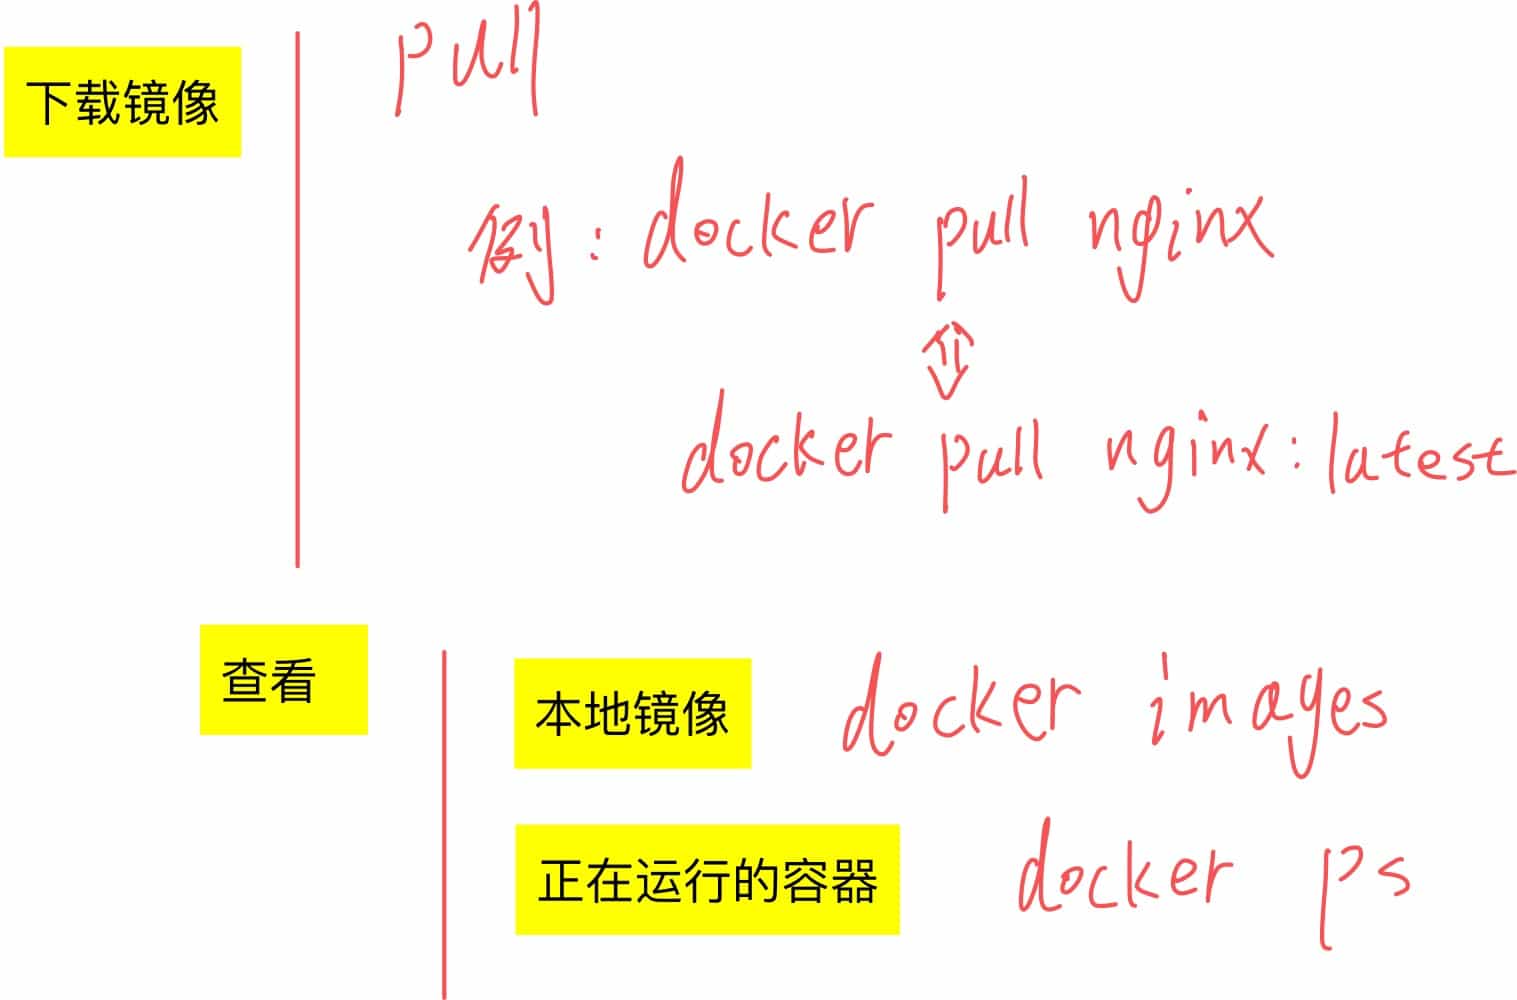 下载镜像
pull
例：docker pull nginx
docker pull nginx:latest
查看
本地镜像 docker images
正在运行的容器 docker ps